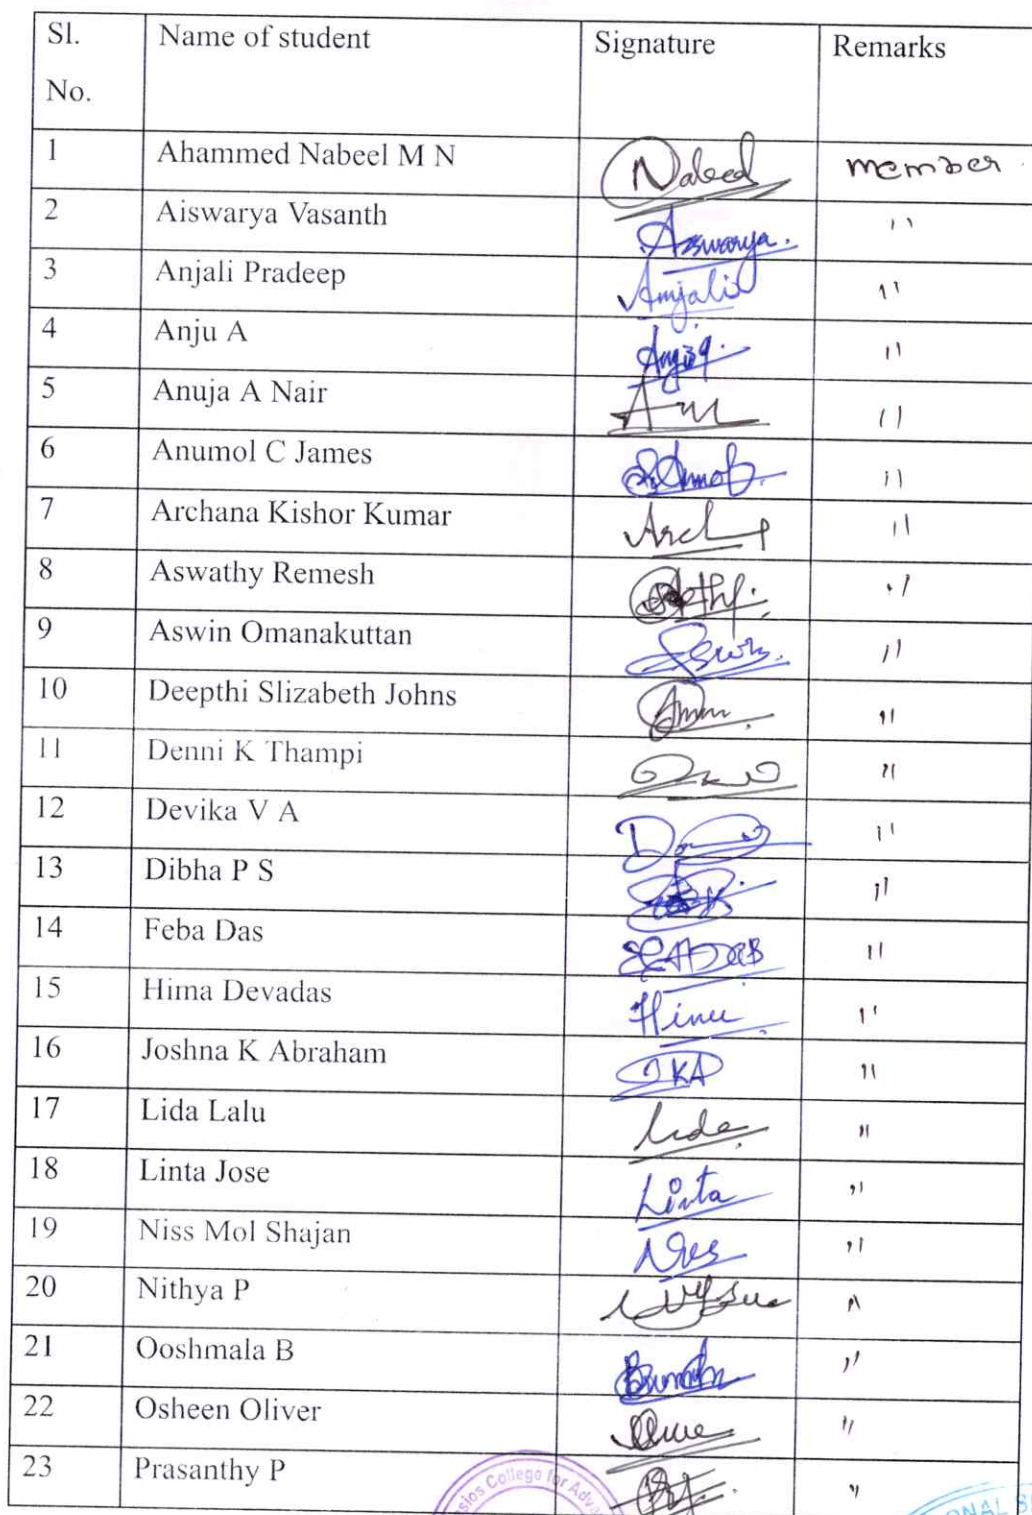 Sl. No. Name of student Signature Remarks
1 Ahammed Nabeel M N Nabeel member
2 Aiswarya Vasanth Aswarya. "
3 Anjali Pradeep Anjali "
4 Anju A "
5 Anuja A Nair "
6 Anumol C James "
7 Archana Kishor Kumar "
8 Aswathy Remesh "
9 Aswin Omanakuttan "
10 Deepthi Slizabeth Johns "
11 Denni K Thampi "
12 Devika V A "
13 Dibha P S "
14 Feba Das "
15 Hima Devadas "
16 Joshna K Abraham JKA "
17 Lida Lalu Lida "
18 Linta Jose Linta "
19 Niss Mol Shajan "
20 Nithya P "
21 Ooshmala B "
22 Osheen Oliver "
23 Prasanthy P "
College for